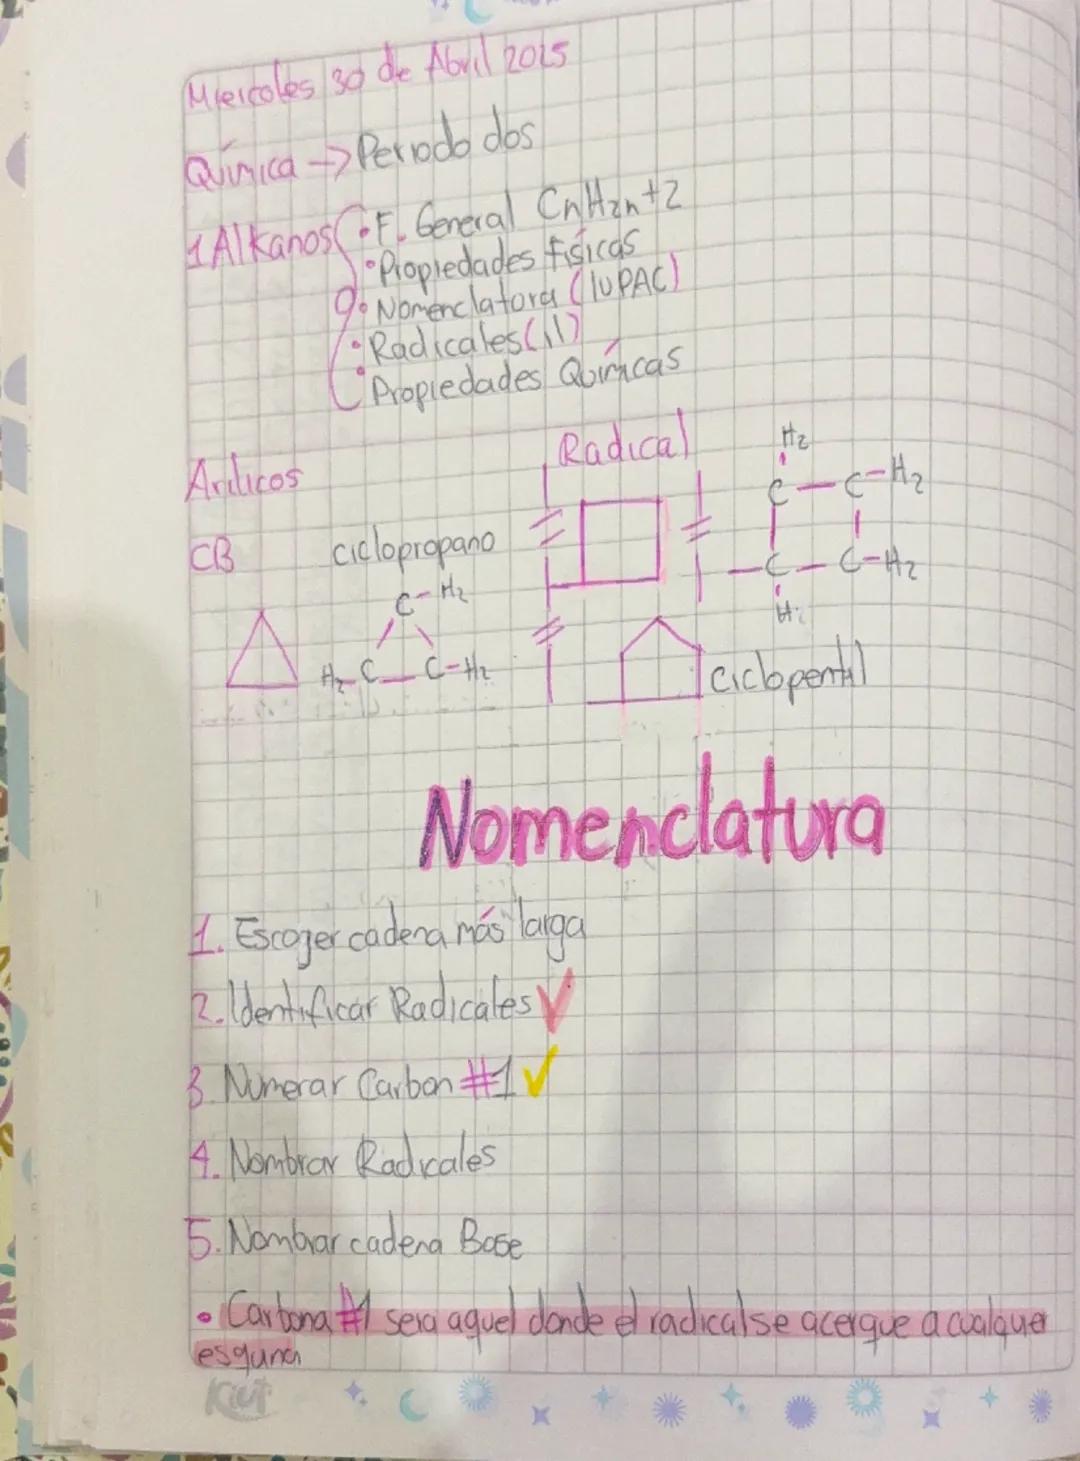 Miercoles 30 de Abril 2025
Química -> Periodo dos
1 Alkanos • F. General CnH2n+2
• Propiedades físicas
• Nomenclatura (IUPAC)
• Radicales (il)
• Propiedades Químicas
Radical
CB
ciclopropano
C-H2
H2-C-C-H2
H2
C-C-H2
-C-C-H2
ciclopentil
Nomenclatura
1. Escoger cadena más larga
2. Identificar Radicales ✓
3. Numerar Carbon #1 ✓
4. Nombrar Radicales
5. Nombrar cadena Base
• Carbona #1 sera aquel donde el radical se acerque a cualquer
esquina
Kiut